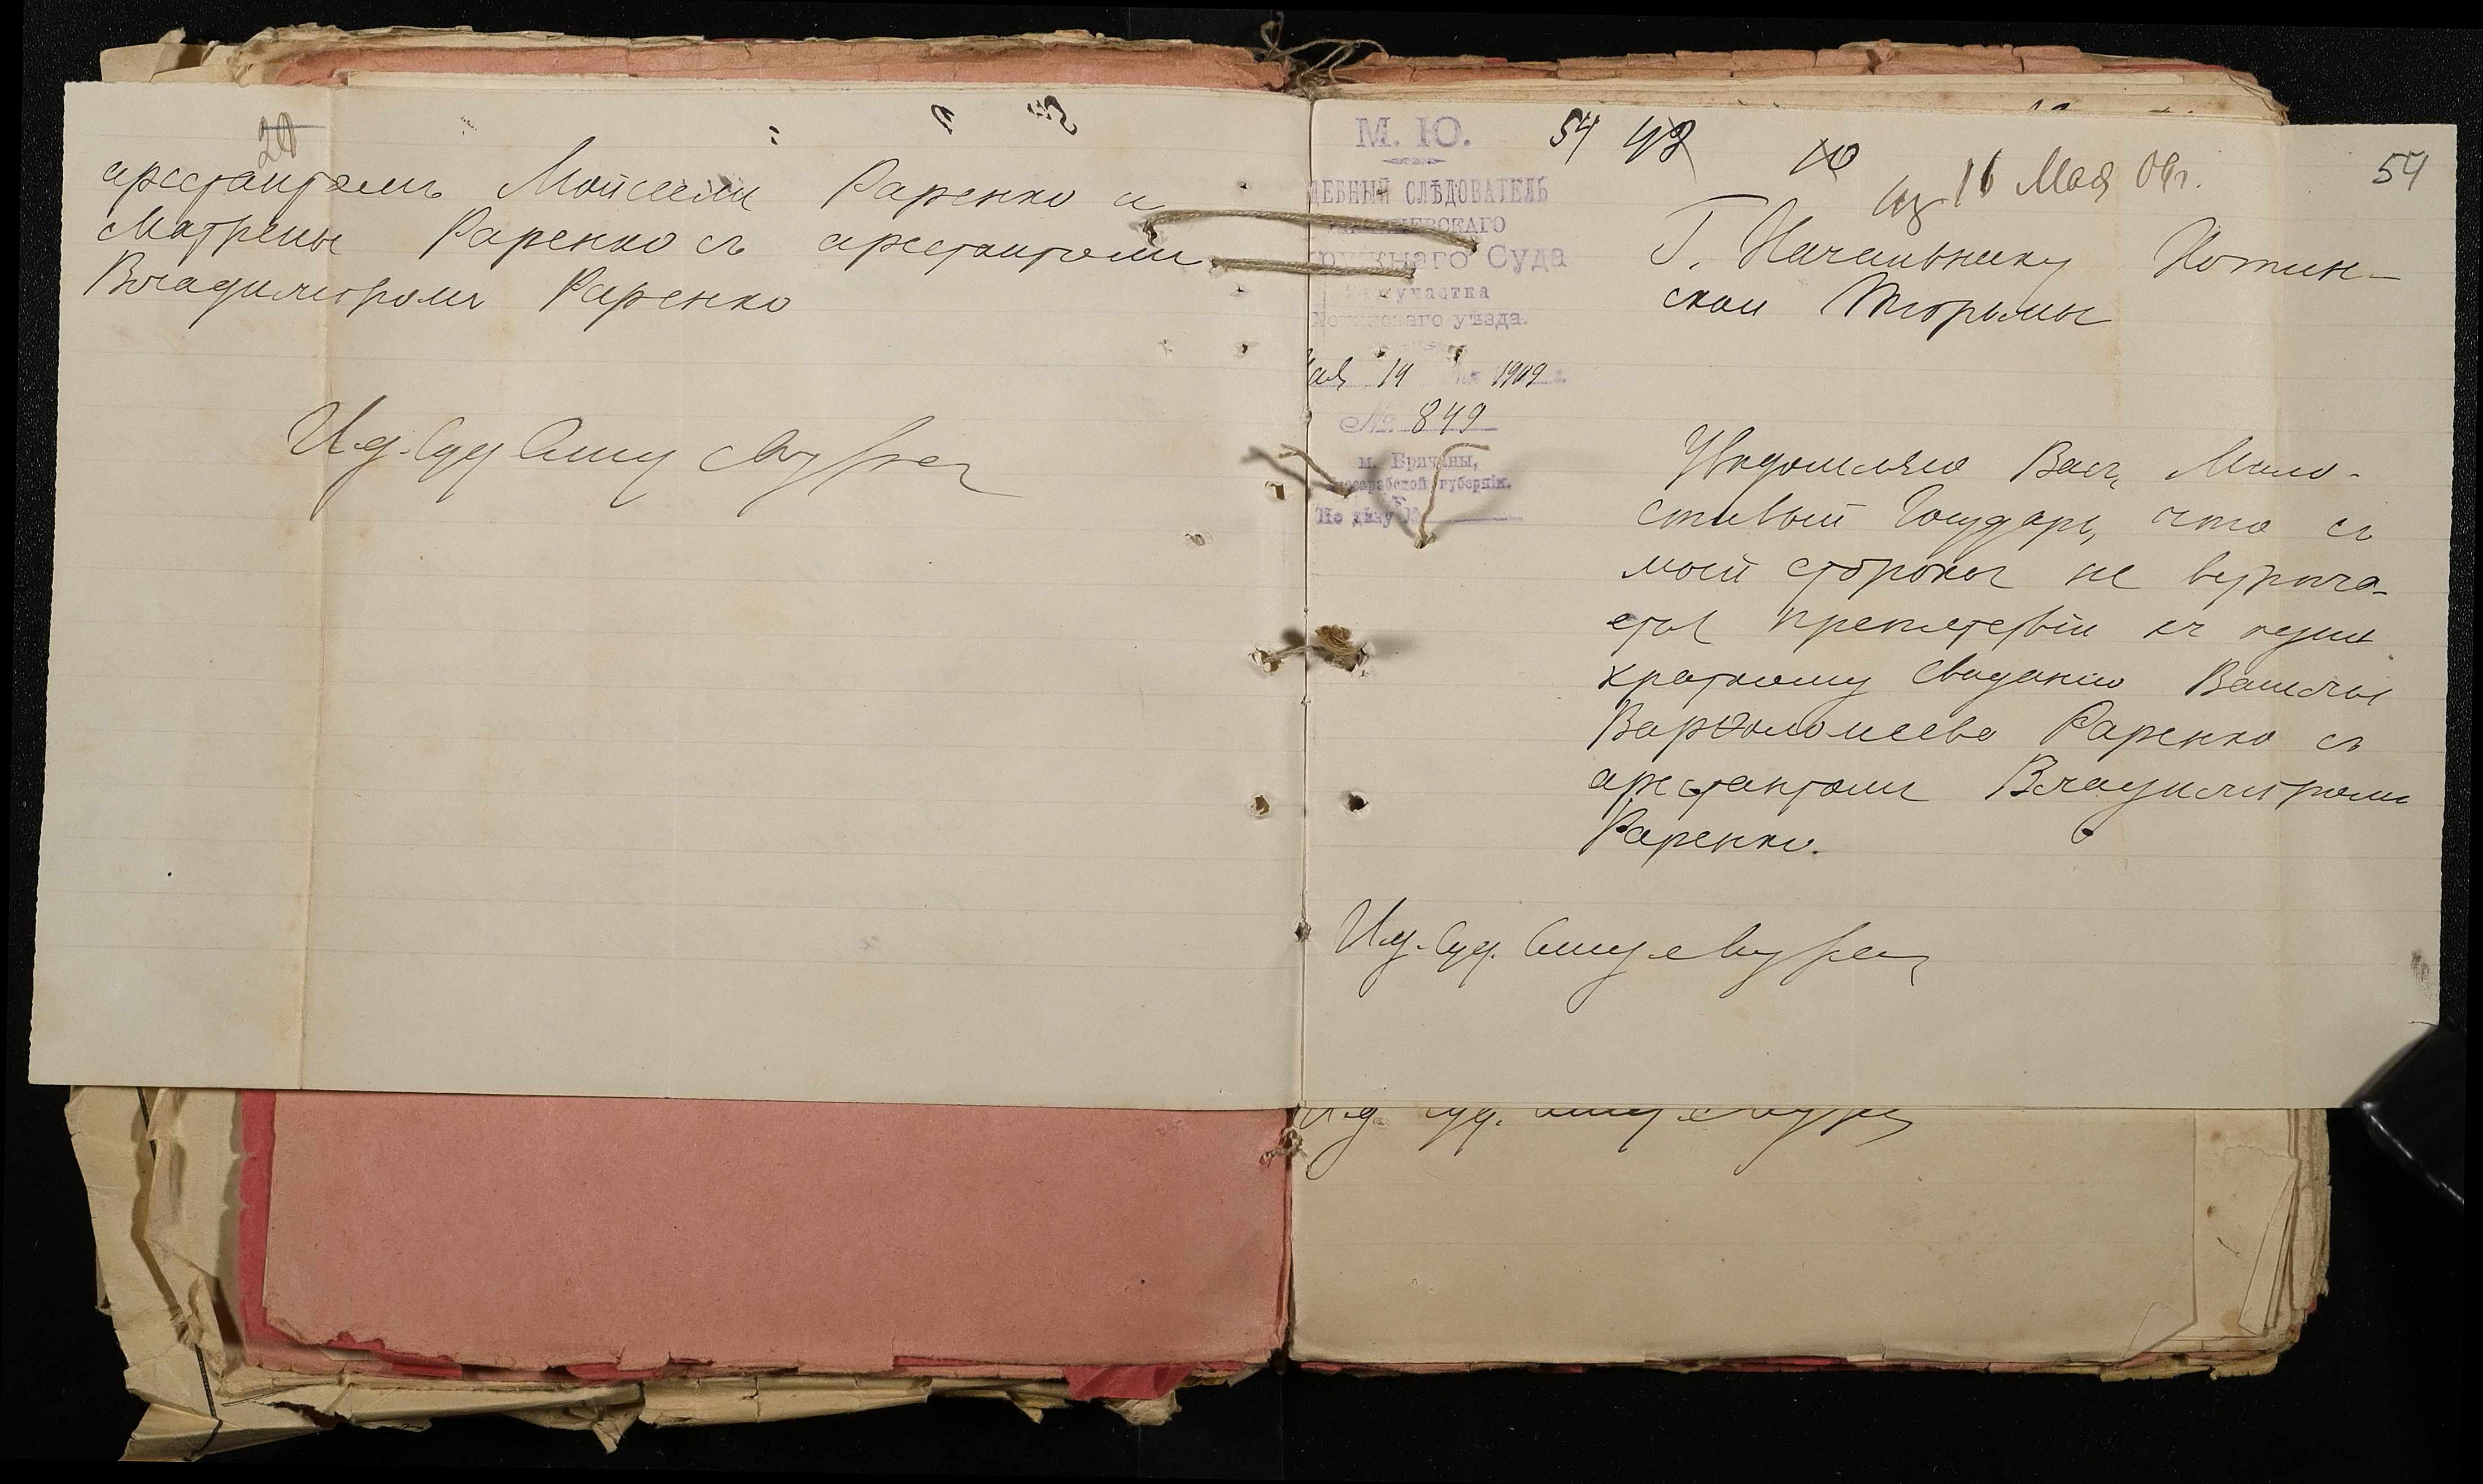 20
арестантомъ Мойсеемъ Раренко и
Матрены Раренко съ арестантомъ
Владимиромъ Раренко
И.д. Суд. Слѣд.
М. Ю.
ДЕБНЫЙ СЛѢДОВАТЕЛЬ
ружнаго Суда
участка
Хотинскаго уѣзда.
мая 14 1909 г.
№ 849
м. Бричаны,
Бессарабской губерніи.
По дѣлу №
54 48
10
11 Мая 09 г.
54
Г. Начальнику Хотин-
ской Тюрьмы
Увѣдомляю Васъ, Мило-
стивый Государь, что съ
моей стороны не встрѣча-
ется препятствій къ одно
кратному свиданію Василія
Варѳоломеева Раренко съ
арестантомъ Владимиромъ
Раренко.
И.д. Суд. Слѣд.
И.д. Суд.